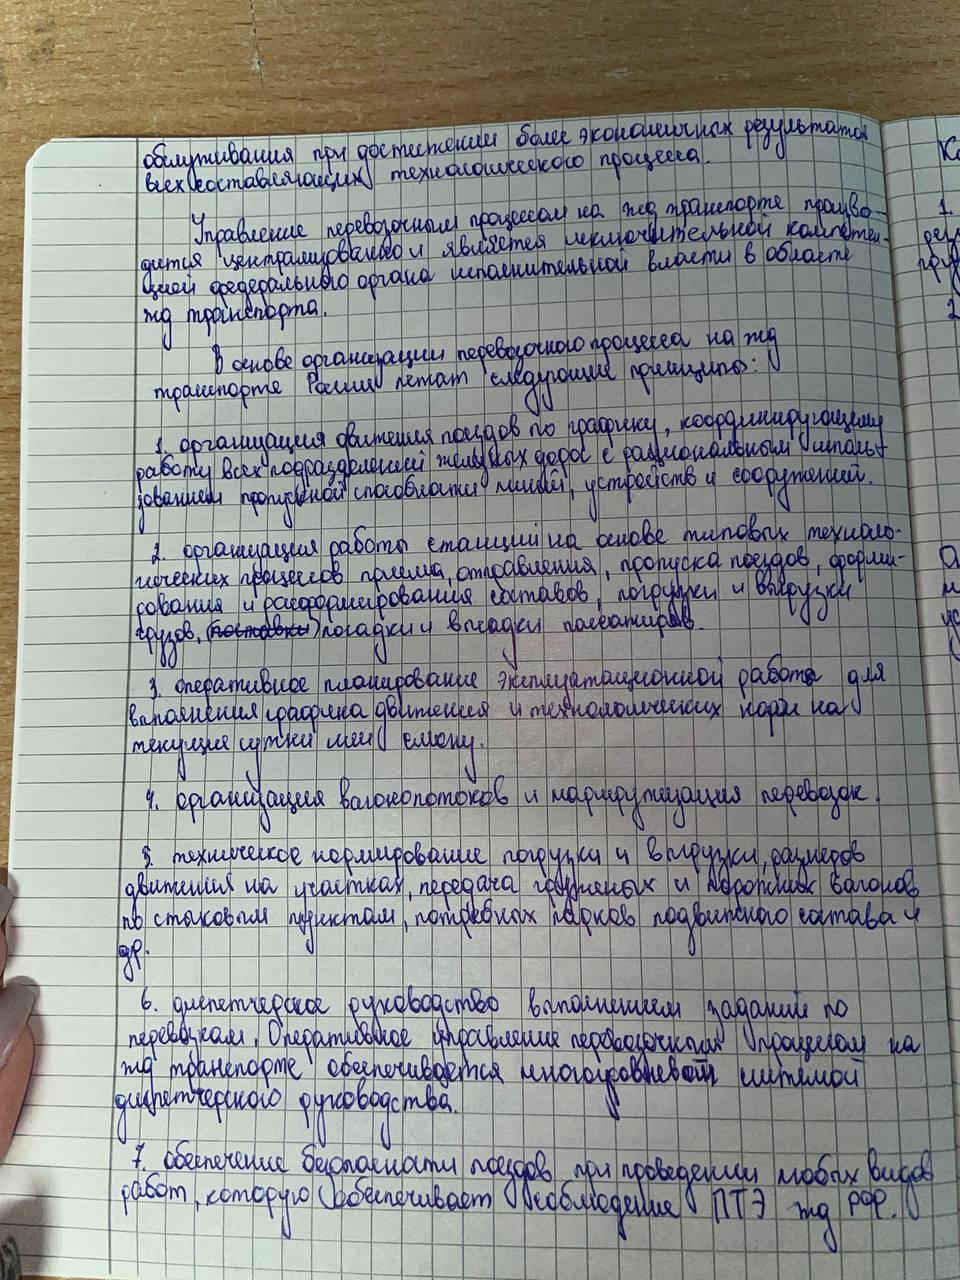 обслуживания при достижении более экономичных результатов
всех составляющих технологического процесса.
Управление перевозочным процессом на жд транспорте произво-
дится централизованно и является исключительной компетен-
цией федерального органа исполнительной власти в области
жд транспорта.
В основе организации перевозочного процесса на жд
транспорте России лежат следующие принципы:
1. организация движения поездов по графику, координирующему
работу всех подразделений железных дорог с рациональным исполь-
зованием пропускной способности линий, устройств и сооружений.
2. организация работы станций на основе типовых техноло-
гических процессов приема, отправления, пропуска поездов, форми-
рования и расформирования составов, погрузки и выгрузки
грузов, (поставки) посадки и высадки пассажиров.
3. оперативное планирование эксплуатационной работы для
выполнения графика движения и технологических норм на
текущие сутки или смену.
4. организация вагонопотоков и маршрутизация перевозок.
5. техническое нормирование погрузки и выгрузки, размеров
движения на участках, передача груженых и порожних вагонов
по стыковым пунктам, потребных парков подвижного состава и
др.
6. диспетчерское руководство выполнением заданий по
перевозкам. Оперативное управление перевозочным процессом на
жд транспорте обеспечивается многоуровневой системой
диспетчерского руководства.
7. обеспечение безопасности поездов при проведении любых видов
работ, которую обеспечивает соблюдение ПТЭ жд РФ.
1.
2